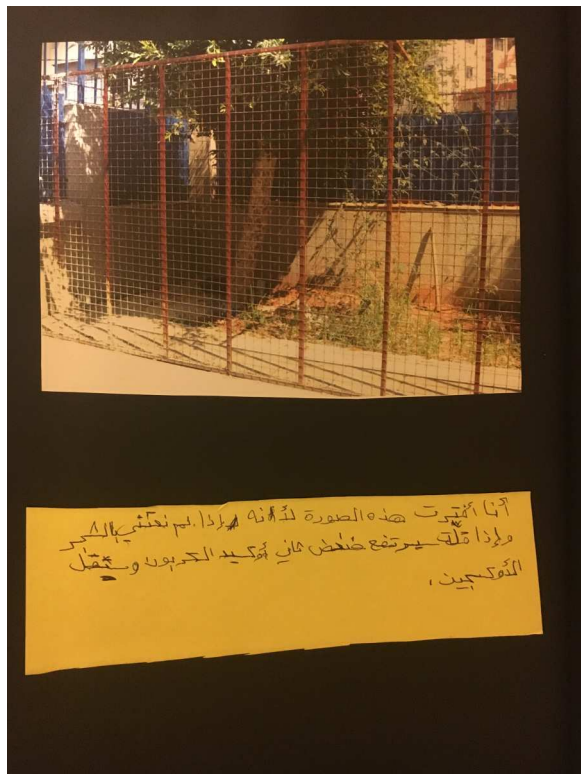 أنا أختيرت هذه الصورة لأنه إذا لم نعتني بالشجر
وإذا قلّة سيرتفع ضغض ثاني أوكسيد الكربون وستقل
الأوكسجين.